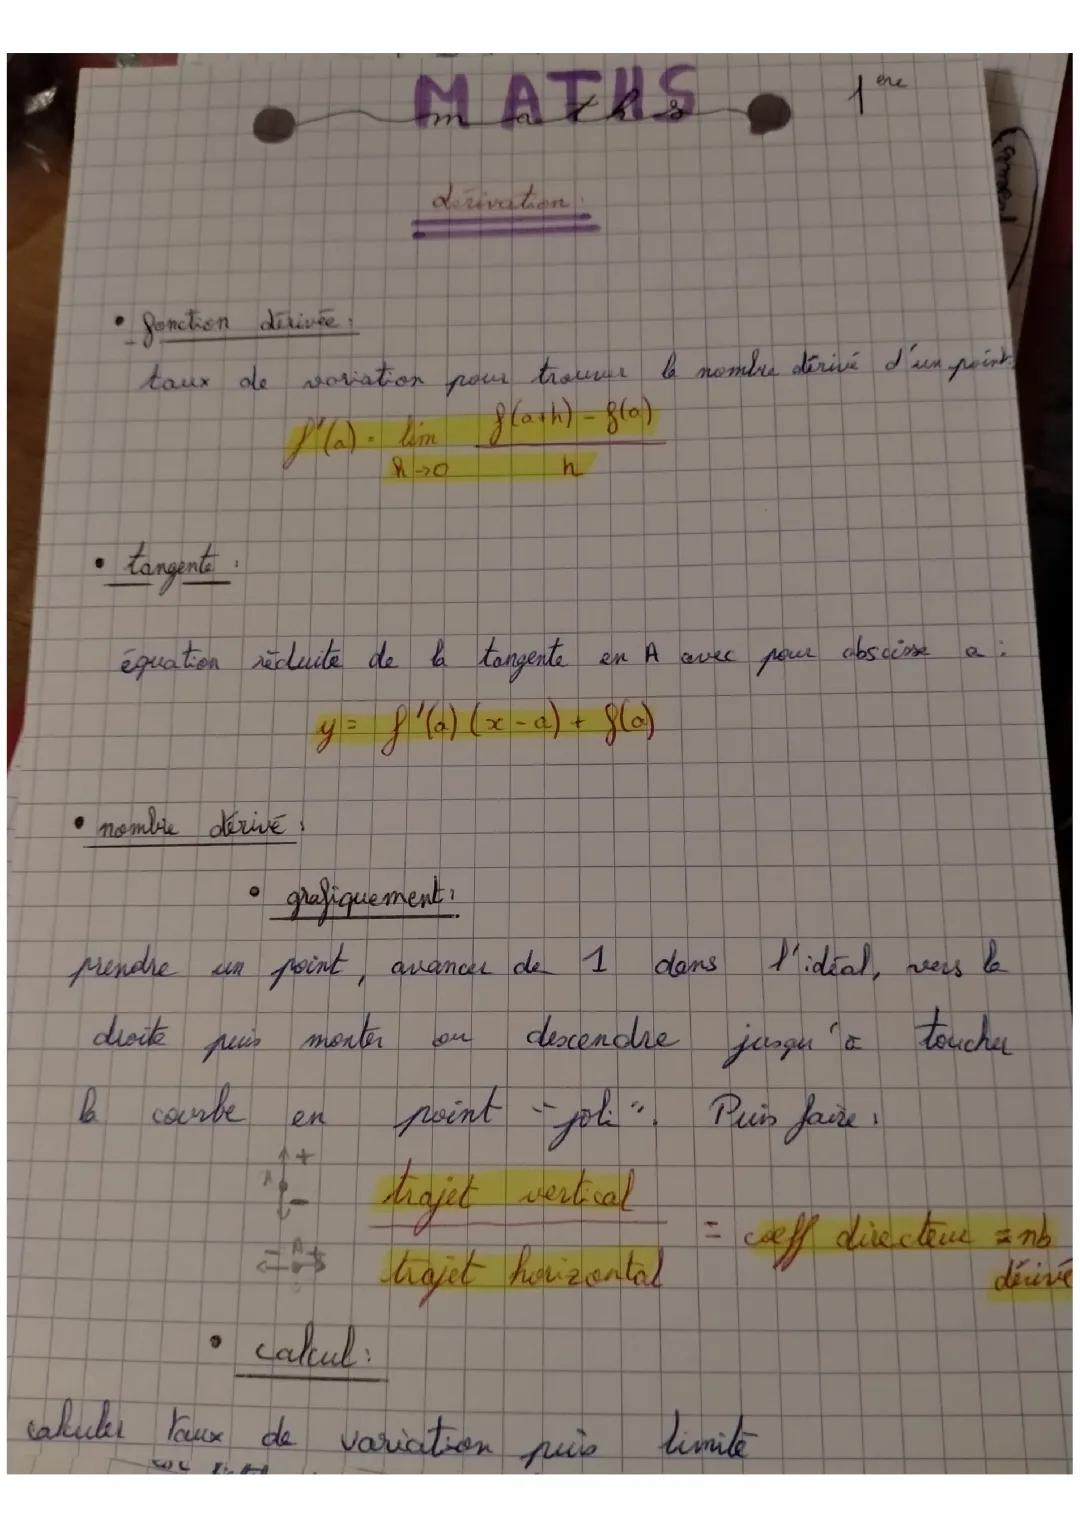 MATHS
maths
1ère
dérivation :
• fonction dérivée :
taux de variation pour trouver le nombre dérivé d'un point.
f'(a) = lim f(a+h) - f(a)
h→0 h
• tangente :
équation réduite de la tangente en A avec pour abscisse a :
y = f'(a) (x - a) + f(a)
• nombre dérivé :
• grafiquement :
prendre un point, avancer de 1 dans l'idéal, vers la
droite puis monter ou descendre jusqu'à toucher
la courbe en point "joli". Puis faire :
A + -
trajet vertical
= coeff directeur = nb
dérivé
- A +
trajet horizontal
• calcul :
calculer taux de variation puis limite